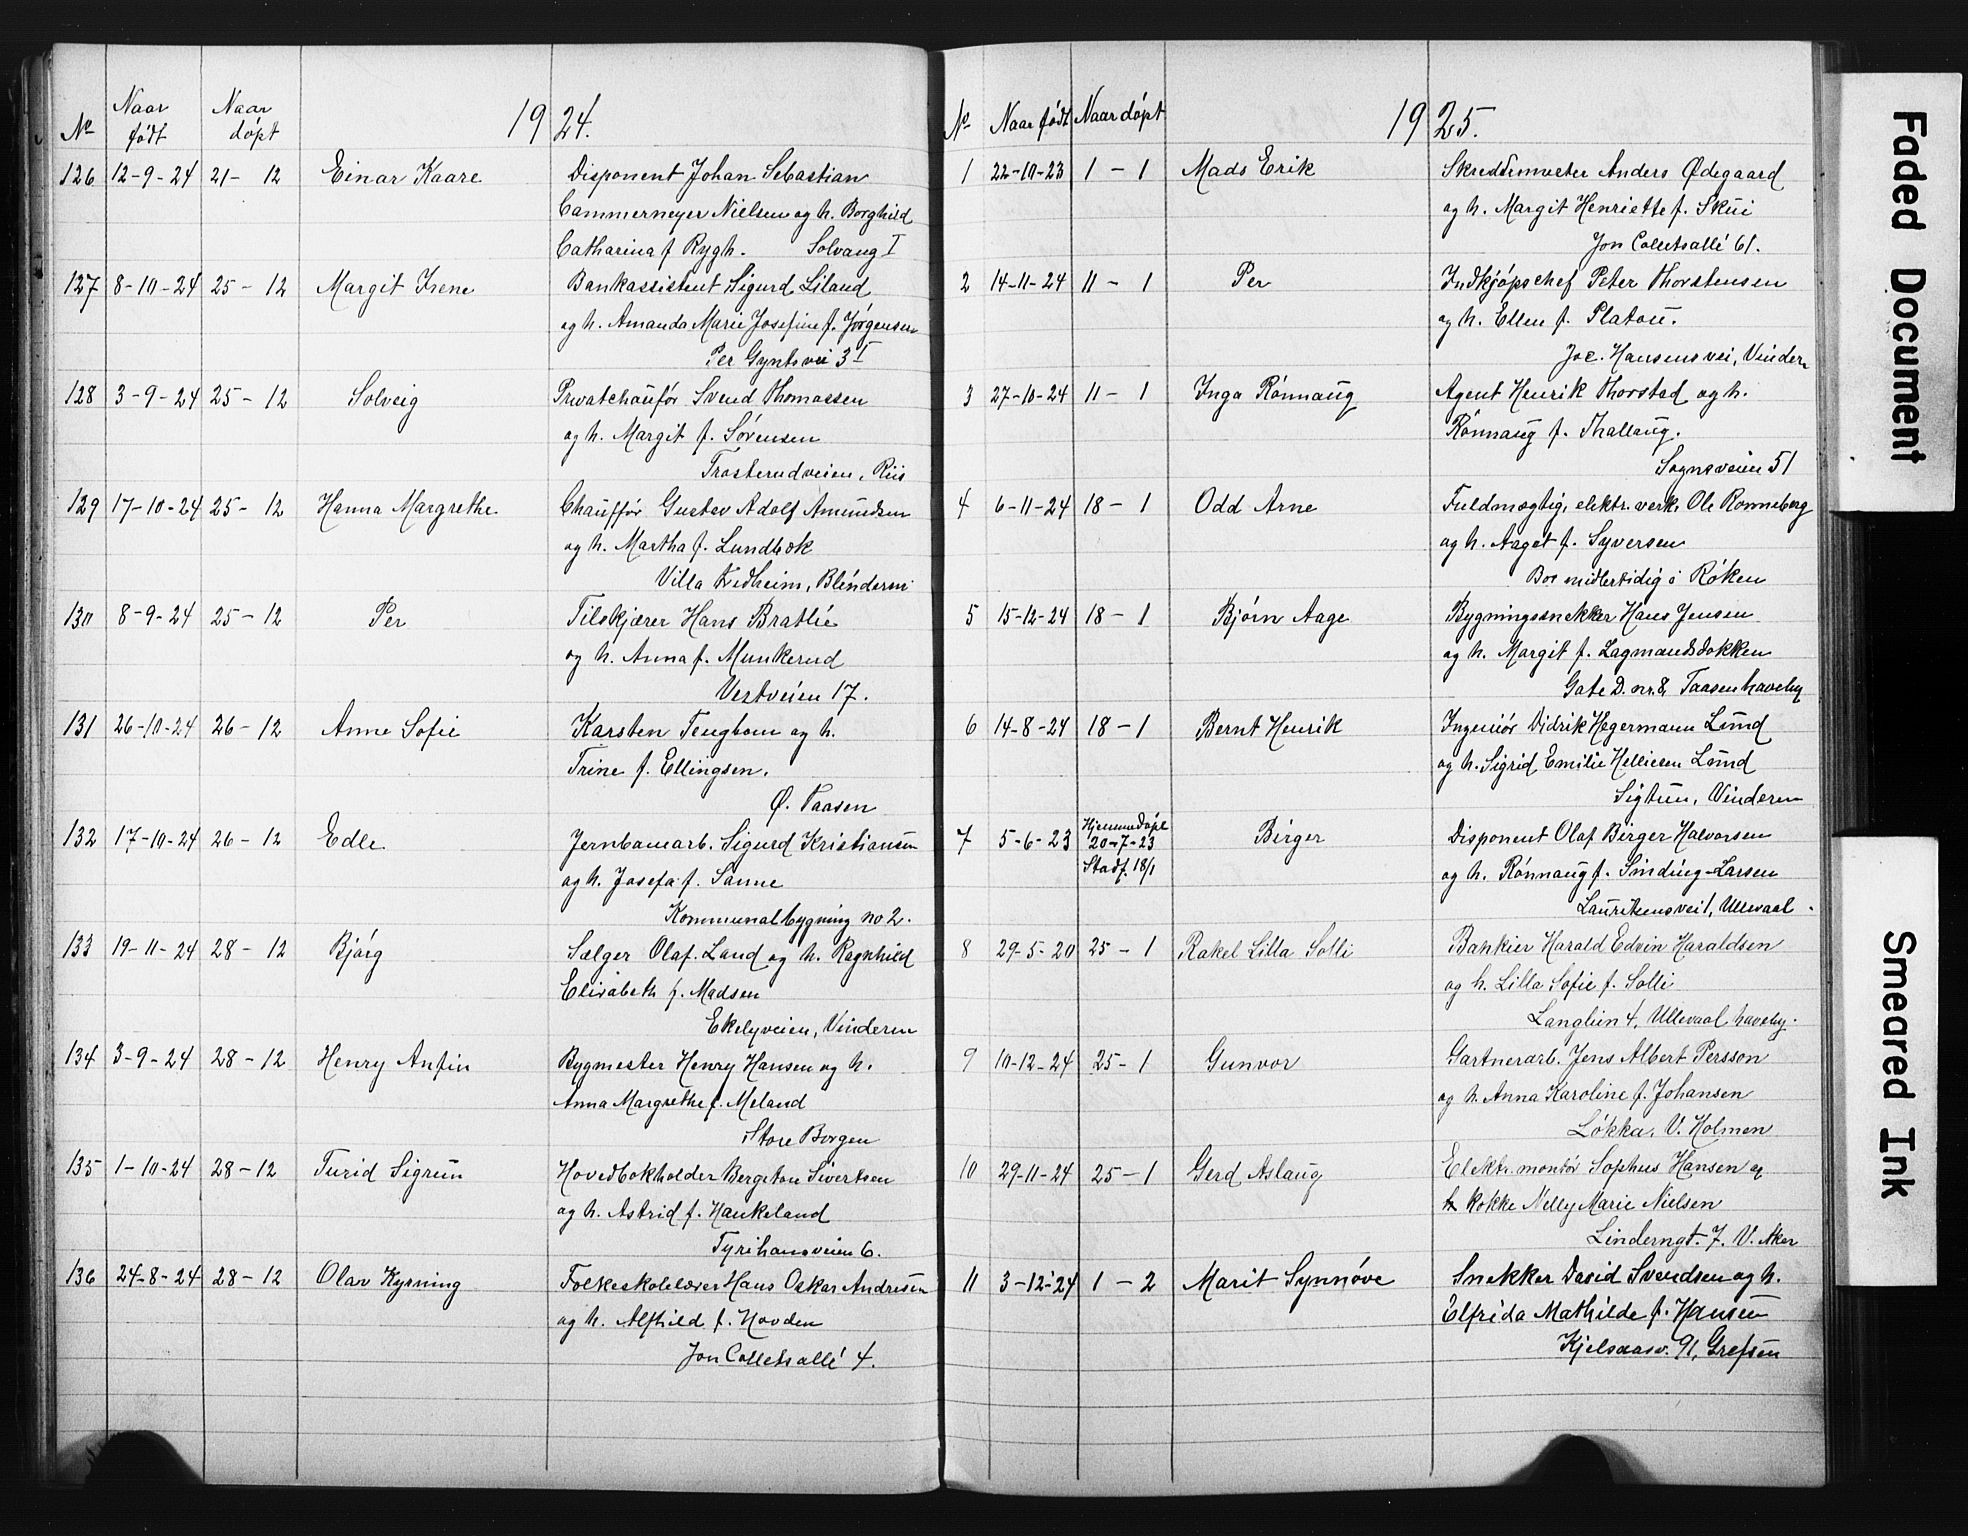 No
Naar født
Naar døpt
1924.
126 12-9-24 21- 12 Einar Kaare Disponent Johan Sebastian
Cammermeyer Nielsen og h. Borghild
Catharina f Rygh. Solvang I
127 8-10-24 25 - 12 Margit Irene Bankassistent Sigurd Liland
og h. Amanda Marie Josefine f. Jørgensen
Per Gyntsvei 3 I
128 3-9-24 25 - 12 Solveig Privatchaufør Svend Thomassen
og h. Margit f. Sørensen
Trosterudveien, Riis
129 17-10-24 25 - 12 Hanna Margrethe Chauffør Gustav Adolf Amundsen
og h. Martha f. Lundbæk
Villa Fredheim, Blindern
130 8-9-24 25 - 12 Per Tilskjærer Hans Bratlie
og h. Anna f. Munkerud
Vestveien 17.
131 26-10-24 26 - 12 Anne Sofie Karsten Tengbom og h.
Trine f. Ellingsen.
Ø. Taasen
132 17-10-24 26 - 12 Edle Jernbanearb. Sigurd Kristiansen
og h. Josefa f. Sanne
Kommunalbygning no 2.
133 19-11-24 28 - 12 Bjørg Sælger Olaf Land og h. Ragnhild
Elisabeth f. Madsen
Ekelyveien, Vinderen
134 3-9-24 28 - 12 Henry Anfin Bygmester Henry Hansen og h.
Anna Margrethe f. Meland
Store Borgen
135 1-10-24 28 - 12 Turid Sigrun Hovedbokholder Bergeton Sivertsen
og h. Astrid f. Haukeland
Tyrihansveien 6.
136 24-8-24 28 - 12 Olav Kyrning Folkeskolelærer Hans Oskar Andresen
og h. Alfhild f. Hovden
Jon Colletsallé 4.
No Naar født Naar døpt 1925.
1 22-10-23 1 - 1 Mads Erik Skreddermester Anders Ødegaard
og h. Margit Henriette f. Skui
Jon Colletsallé 61.
2 14-11-24 11 - 1 Per Indkjøpschef Peter Thorstensen
og h. Ellen f. Platou.
Joe. Hansens vei, Vinderen
3 27-10-24 11 - 1 Inga Rønnaug Agent Henrik Thorstad og h.
Rønnaug f. Thallaug.
Sognsveien 51
4 6-11-24 18 - 1 Odd Arne Fuldmægtig, elektr. verk. Ole Ronneberg
og h. Aagot f. Syversen
Bor midlertidig i Røken
5 15-12-24 18 - 1 Bjørn Aage Bygningssnekker Hans Jensen
og h. Margit f. Lagmandsdokken
Gate D. nr. 8, Taasen haveby
6 14-8-24 18 - 1 Bernt Henrik Ingeniør Didrik Hegermann Lund
og h. Sigrid Emilie Hellicen Lund
Sigtun, Vinderen
7 5-6-23 Hjemmedøpt 20-7-23 Stadf. 18/1 Birger Disponent Olaf Birger Halvorsen
og h. Rønnaug f. Sinding-Larsen
Lauritsens vei 1, Ullevaal.
8 29-5-20 25 - 1 Rakel Lilla Solli Bankier Harald Edvin Haraldsen
og h. Lilla Sofie f. Solli
Langlien 4, Ullevaal haveby.
9 10-12-24 25 - 1 Gunvor Gartnerarb. Jens Albert Persson
og h. Anna Karoline f. Johansen
Løkka, V. Holmen
10 29-11-24 25 - 1 Gerd Aslaug Elektr. montør Sophus Hansen og
kokke Nelly Marie Nielsen
Linderngt. 7. V. Aker
11 3-12-24 1 - 2 Marit Synnøve Snekker David Svendsen og h.
Elfrida Mathilde f. Hansen
Kjelsaasv. 91, Grefsen
Faded Document
Smeared Ink